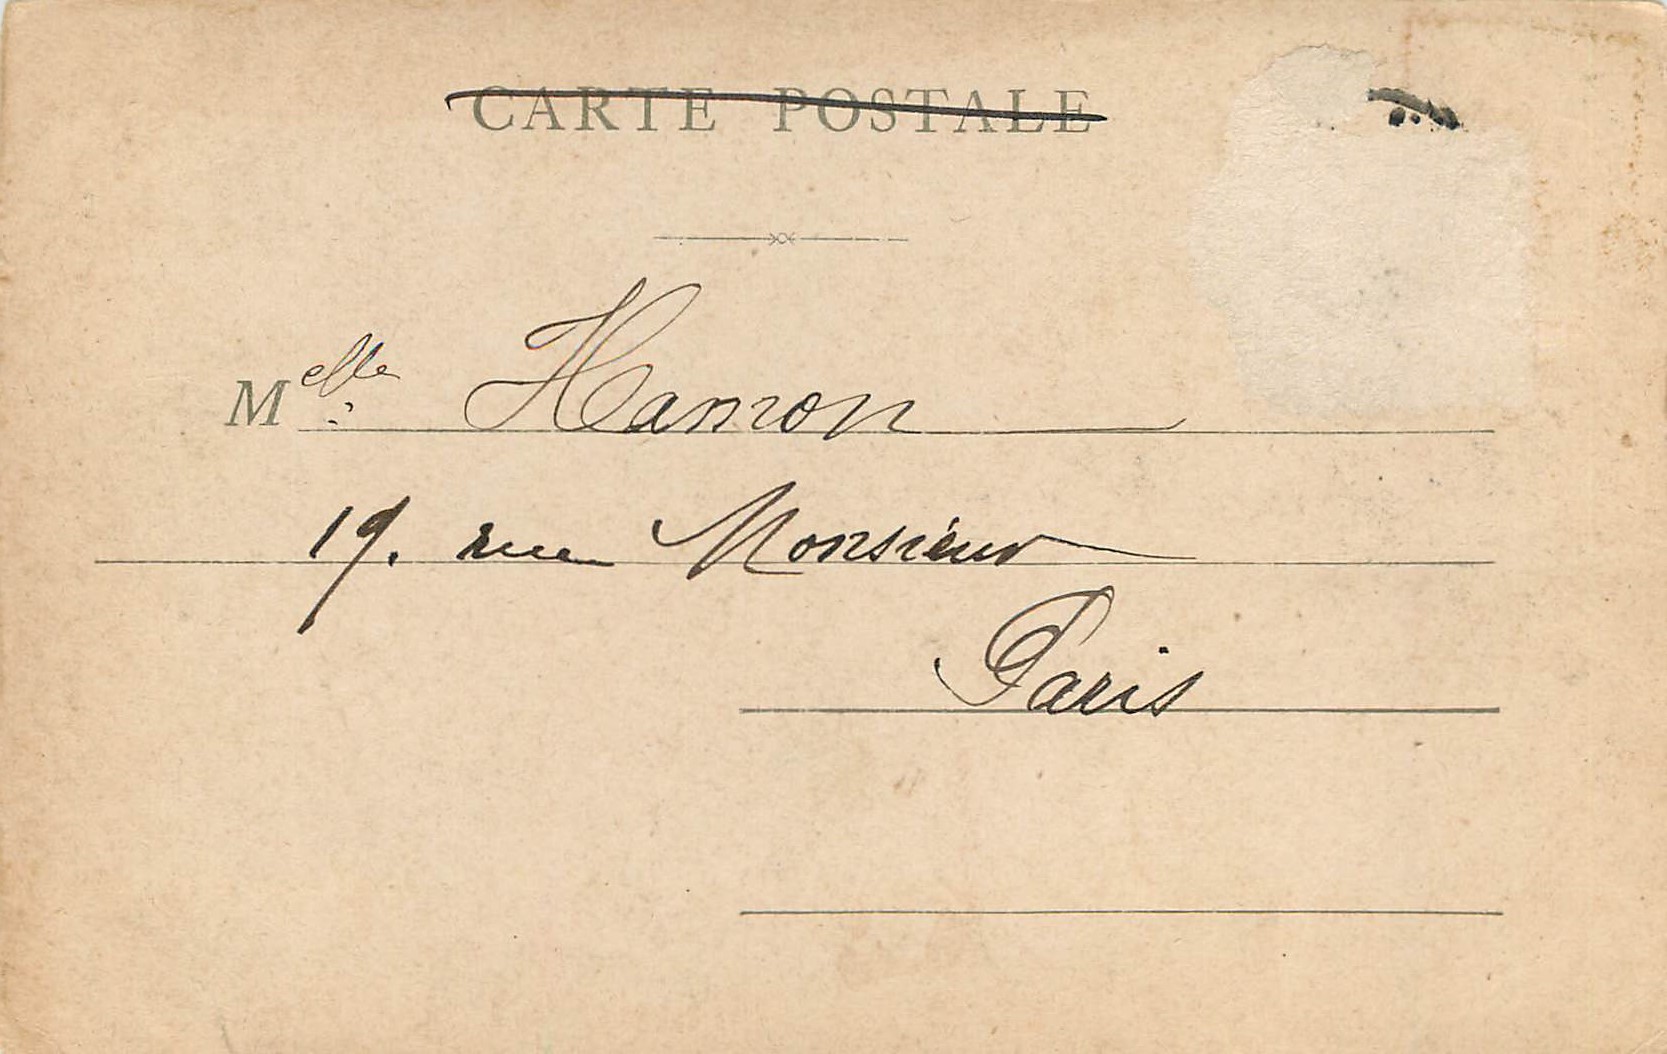 CARTE POSTALE
Melle Hamon
19. rue Monsieur
Paris